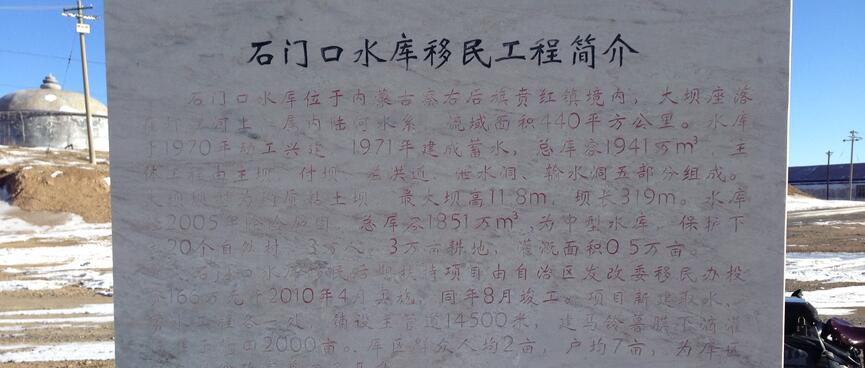 石门口水库移民工程简介
石门口水库位于内蒙古察右后旗贲红镇境内，大坝座落
河上 属内陆河水系 流域面积440平方公里。水库
1970年动工兴建 1971年建成蓄水，总库容1941万m³，主
体工程由主坝 付坝 溢洪道、泄水洞、输水洞五部分组成。
坝 为 质粘土坝 最大坝高11.8m，坝长319m。水库
2005年除险加固 总库容1851万m³，为中型水库 保护下
20个自然村 3万人 3万亩耕地，灌溉面积0.5万亩。
石门口水库移民后期扶持项目由自治区发改委移民办投
166万元于2010年4月实施，同年8月竣工。项目新建取水、
水工程各一处，铺设主管道14500米，建马铃薯膜下滴灌
2000亩。库区群众人均2亩，户均7亩，为库区